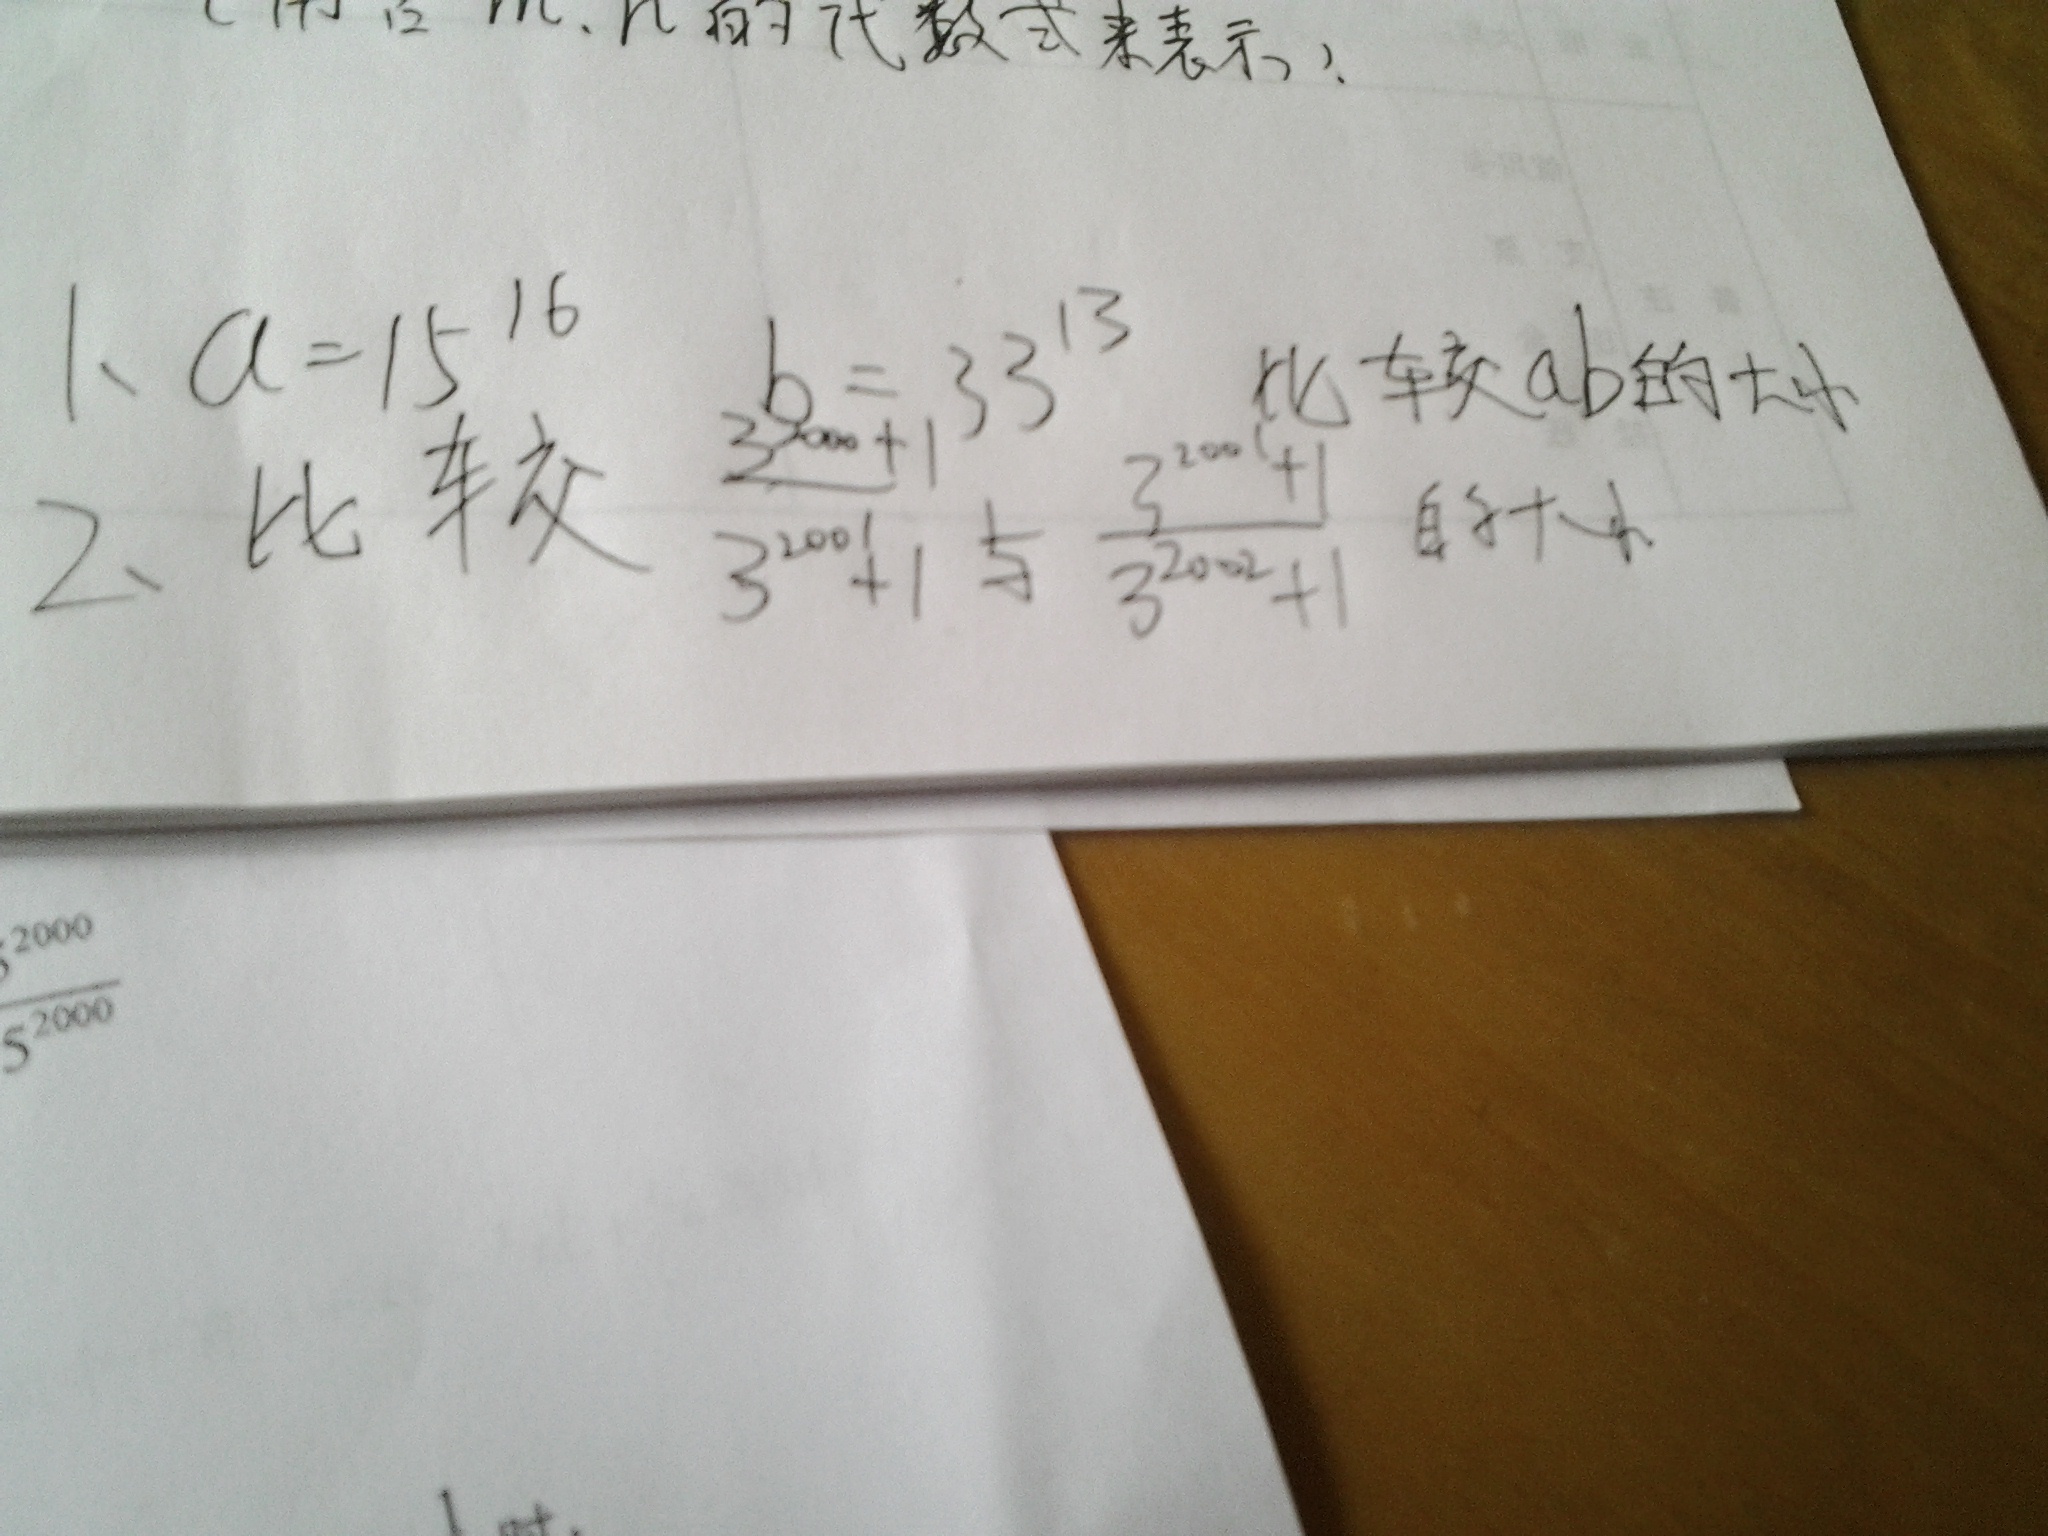 用含m、n的代数式来表示)、
1、a=15^16 b=33^13 比较ab的大小
2、比较 3^2000+1/3^2001+1 与 3^2001+1/3^2002+1 的大小
2000
5^2000
时,